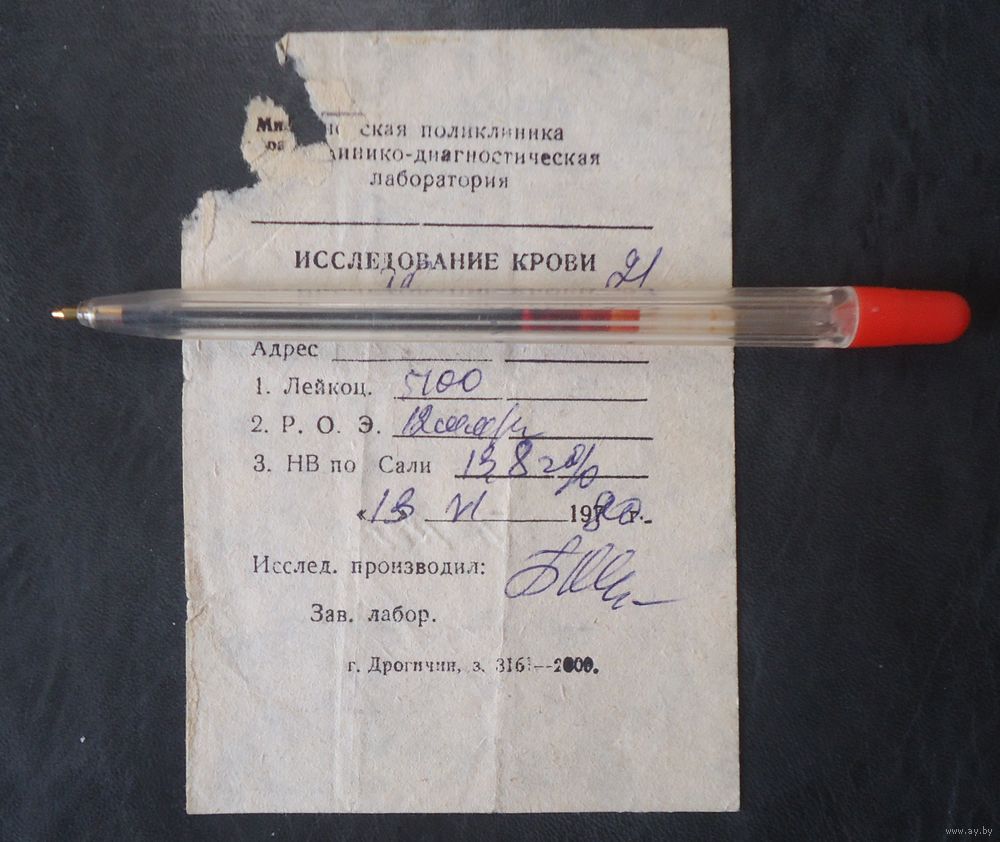 ская поликлиника
инико-диагностическая
лаборатория
ИССЛЕДОВАНИЕ КРОВИ 21
Адрес
1. Лейкоц. 5100
2. Р. О. Э. 12мм/ч
3. НВ по Сали 13,8 г%
«13 VI 1980 г.
Исслед. производил:
Зав. лабор.
г. Дрогичин, з. 3161—2000.
www.ay.by